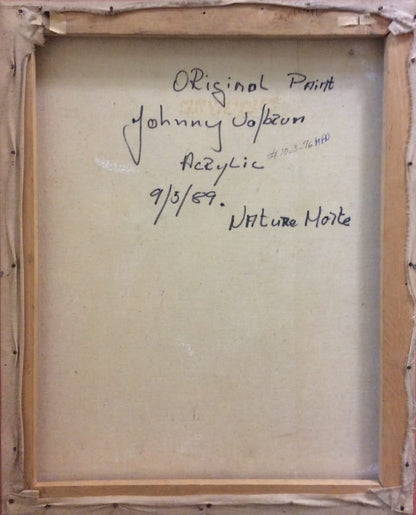 ORiginal Paint
Johnny Volbrun
Acrylic
9/3/89.
NAture Morte